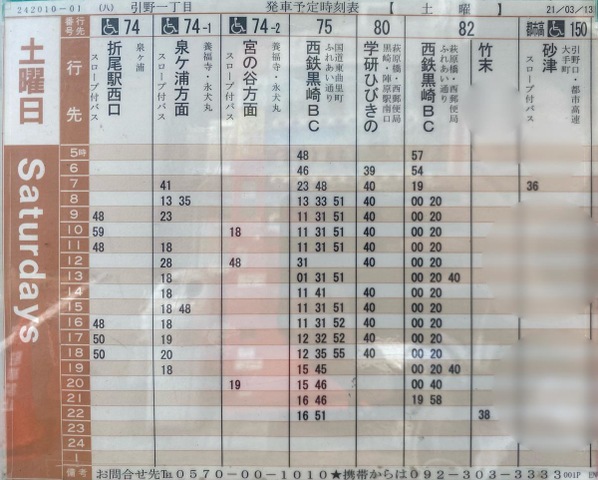 242010-01 (八) 引野一丁目 発車予定時刻表 【 土 曜 】 21/03/13
土曜日
Saturdays
行先番号 74 74-1 74-2 75 80 82 都市高 150
行先
折尾駅西口 泉ヶ浦 スロープ付バス
泉ケ浦方面 養福寺・永犬丸 スロープ付バス
宮の谷方面 養福寺・永犬丸 スロープ付バス
西鉄黒崎BC 国道東曲里町 ふれあい通り
学研ひびきの 萩原橋・西郵便局 黒崎・陣原駅南口
西鉄黒崎BC 萩原橋・西郵便局 ふれあい通り
竹末
砂津 引野口・都市高速 大手町 スロープ付バス
5時 48 57
6 46 39 54
7 41 23 48 40 19 36
8 13 35 13 33 51 40 00 20
9 48 23 11 31 51 40 00 20
10 59 18 11 31 51 40 00 20
11 48 18 11 31 51 40 00 20
12 28 48 31 40 00 20
13 18 01 31 51 00 20 40
14 18 11 41 40 00 20
15 18 48 11 31 51 40 00 20
16 48 18 11 31 52 40 00 20
17 50 19 12 32 52 40 00 20
18 50 20 12 35 55 40 00 20
19 18 15 45 00 20 40
20 19 15 46 00 40
21 16 46 19 58
22 16 51 38
23
24
1
備考 お問合せ先℡0570-00-1010★携帯からは092-303-3333 001P